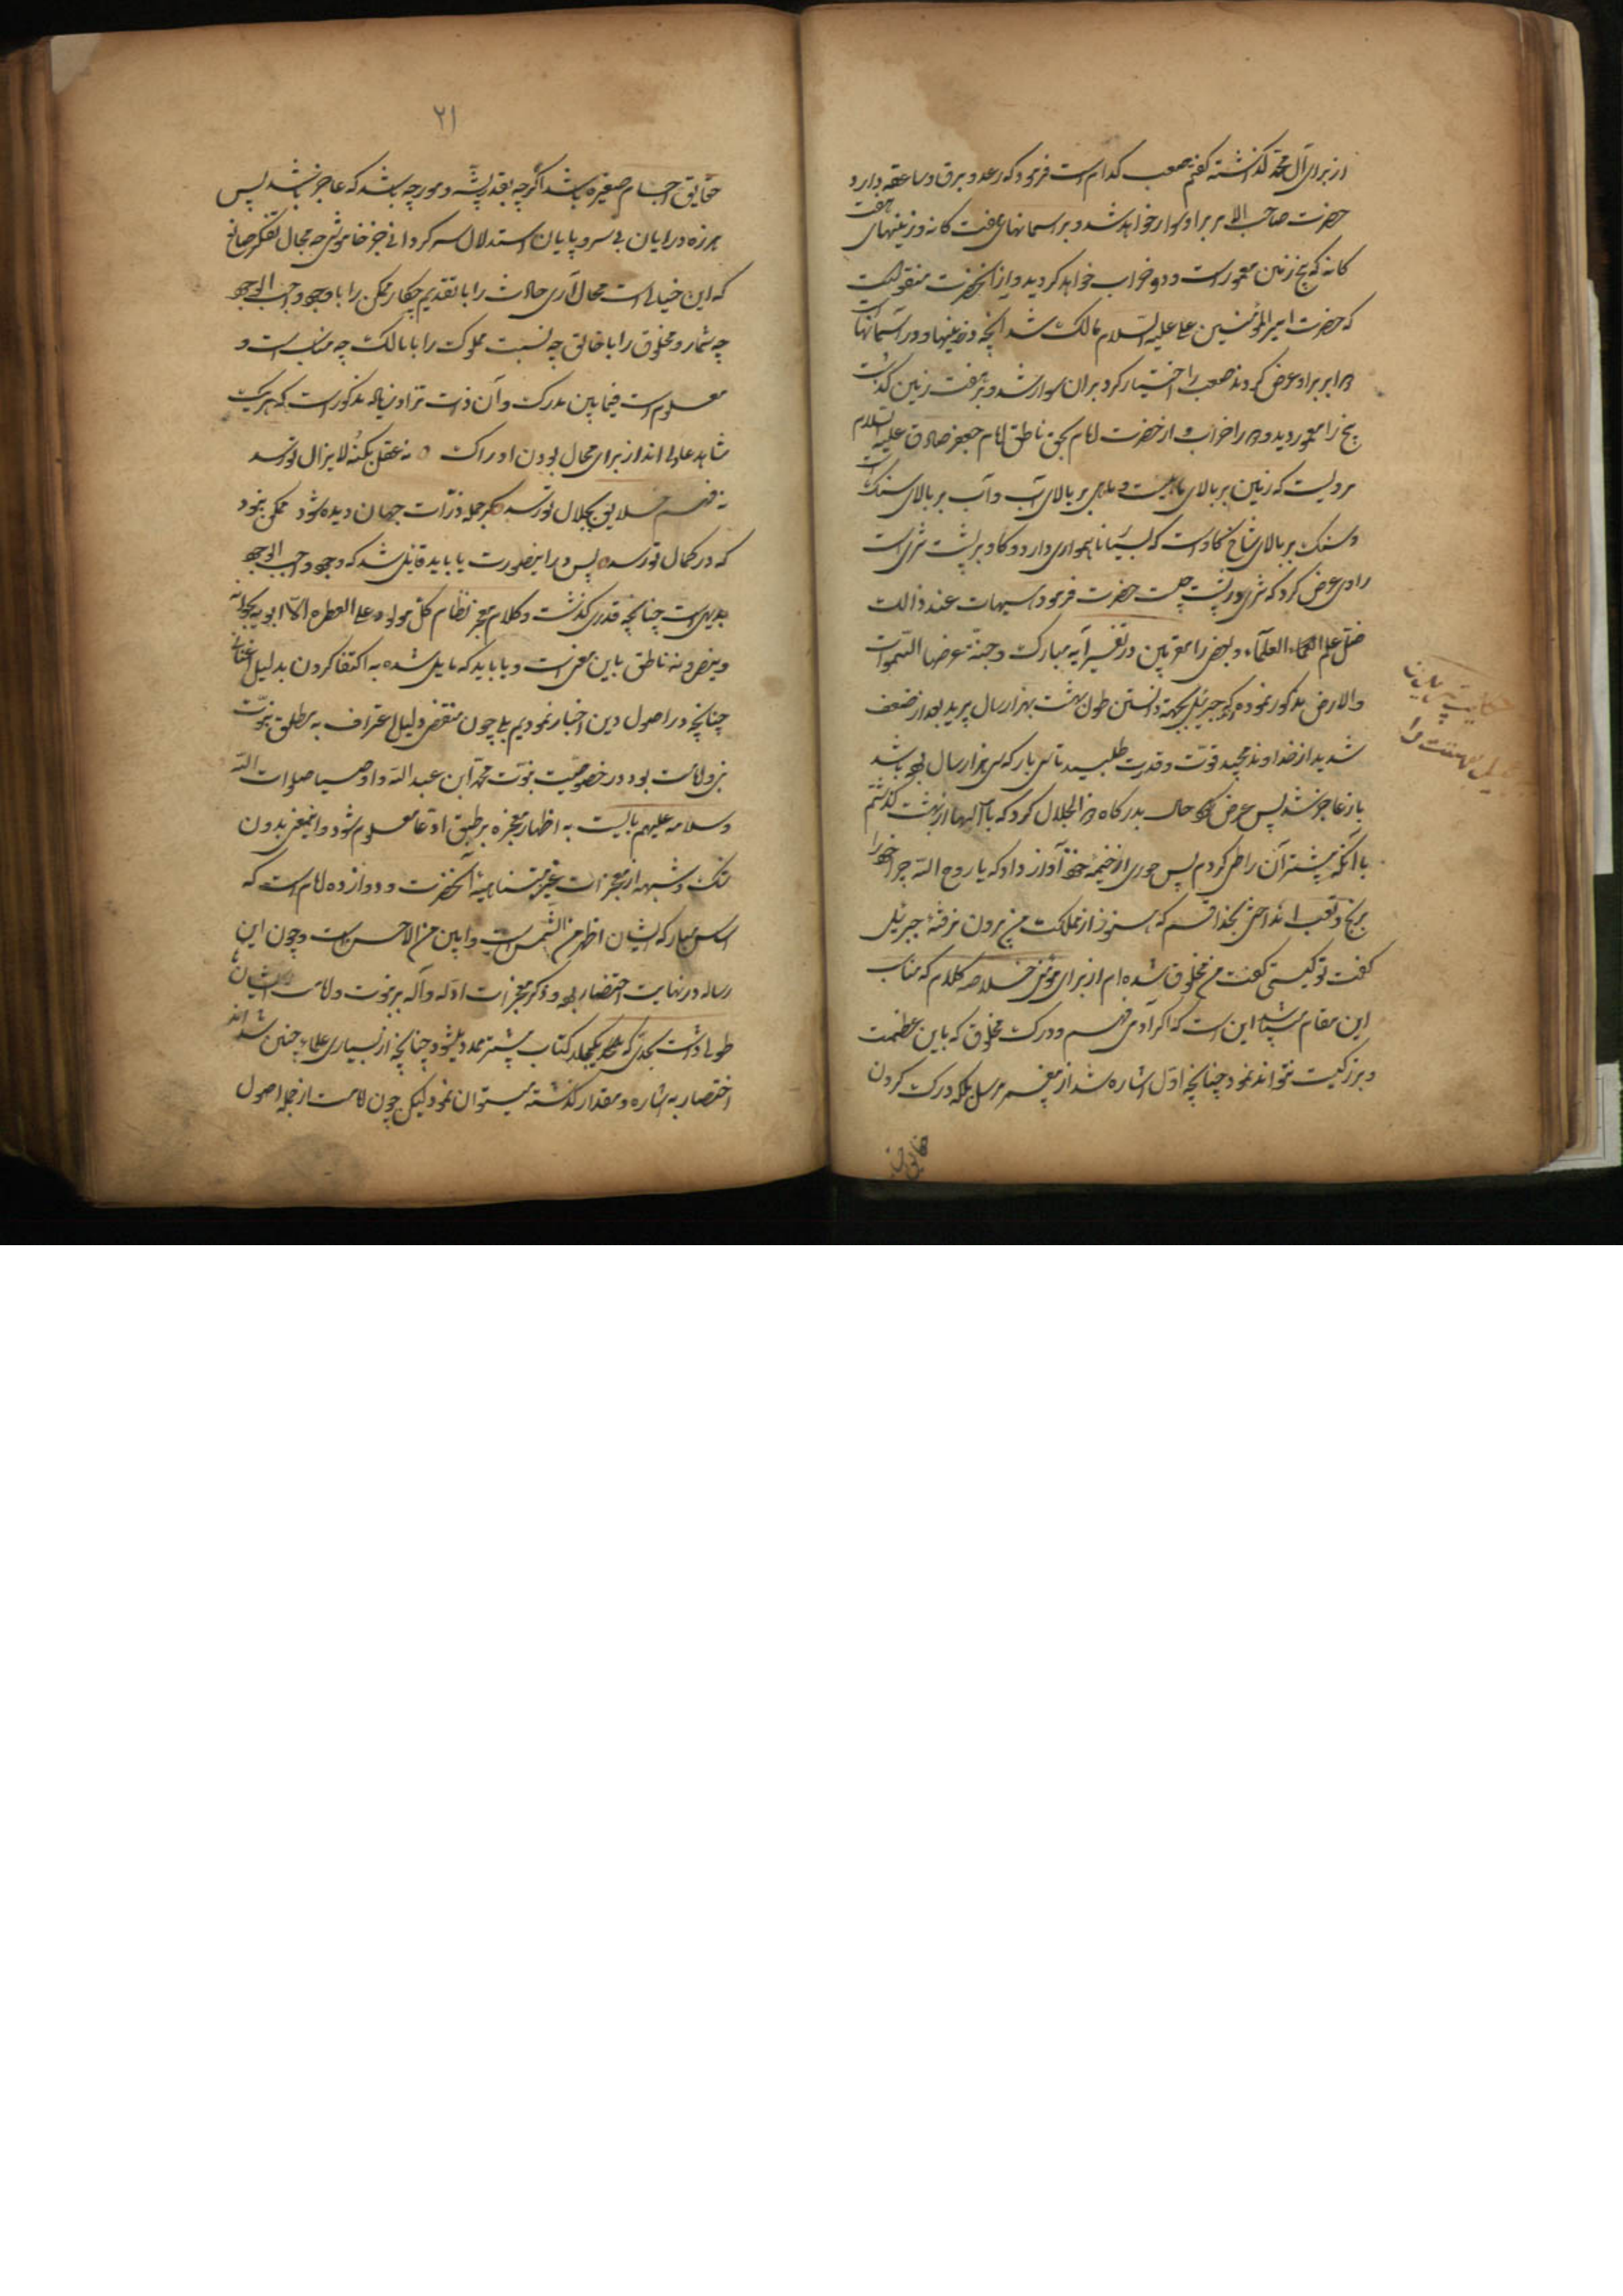 از برای آل محمد گذاشته گفتم صعب کدام است فرمود که رعد و برق و صاعقه دارد
حضرت صاحب الامر بر او سوار خواهد شد و بر اسمانهای هفت کانه و زمینهای هفت
کانه که پنج زمین معمور است و دو خراب خواهد کردید و از انحضرت منقولست
که حضرت امیر المؤمنین علی علیه السلام مالک شد آنچه در زمینها و در آسمانها است
ابر بر او عرض کردند صعب را اختیار کرد بر ان سوار شد و بر هفت زمین گذشت
پنج را معمور دید و دو را خراب و از حضرت امام بحق ناطق امام جعفر صادق علیه السلام
مرویست که زمین بر بالای ماهیست و ماهی بر بالای آب و آب بر بالای سنگ است
و سنک بر بالای شاخ کاو است که بسیار ناهمواری دارد و کاو بر پشت ثری است
راوی عرض کرد که ثری بر پشت چیست حضرت فرمود هیهات عند ذالک
ضل علم العلماء و بعضی از معتبرین در تفسیر آیه مبارک و جنة عرضها السموات
والارض مذکور نموده که جبرئیل بجهة دانستن طول بهشت هزار سال پرید بعد از ضعف
شدید از خداوند مجید قوت و قدرت طلبید تا سی بار که سی هزار سال بوده باشد
باز عاجز شد پس عرض حال بدرکاه ذو الجلال کرد که یا الها از بهشت گذشتم
یا آنکه بیشتر آن را طی کردم پس حوری از خیمه خود آواز داد که یا روح الله چرا خود را
برنج و تعب انداختی بخدا قسم که هنوز از مملکت من بیرون نرفته جبرئیل
گفت تو کیستی گفت من مخلوق شده ام از برای مؤمنی خلاصه کلام که مناسب
این مقام باشد این است که اگر آدمی فهم و درک مخلوق که باین عظمت
و بزرگیست نتواند نمود چنانچه اول اشاره شد از پیغمبر مرسل بلکه درک کردن
حقایق
حکایت پریدن
جبرئیل بهشت را
۲۱
حقایق اجسام صغیره باشد اگرچه بقدر پشه و مورچه باشد که عاجز باشد پس
هرزه درایان بی سر و پایان استدلال سرکردانی جز خاموشی چه مجال تفکر صانع
که این خیالی است محال آری حادث را با تقدیم چکار ممکن را با وجود واجب الوجود
چه شمار و مخلوق را با خالق چه نسبت مملوک را با مالک چه مناسب است و
معلوم است فیما بین مدرک و آن ذات تراوسیاله مذکور است که هریک
شاهد عادلی اند از برای محال بودن ادراک نه عقل بکنه لایزال تو رسد
نه فهم خلایق بجلال تو رسد گر جمله ذرات جهان دیده شود ممکن نبود
که در کمال تو رسد پس در اینصورت یا باید قایل شد که وجود واجب الوجود
بدیهی است چنانچه قدری گذشت و کلام معجز نظام کل مولود علی الفطره الا ابویه یهودانه
و ینصرونه ناطق باین معنی است و یا باید که مایل شده به اکتفا کردن بدلیل اقناعی
چنانچه در اصول دین اخبار نمودیم بلی چون مقتضی دلیل اعتراف به مطلق نبوت
نیز ولایت بود در خصوصیت نبوت محمد ابن عبد الله و اوصیا صلوات الله
و سلامه علیهم بایست به اظهار معجزه بر طبق ادعا معلوم شود و اینمعنی بدون
شک و شبهه از معجزات غیر متناهیة آنحضرت و دوازده امام است که
اساس مبارکه ایشان اظهر من الشمس است و ابین من الامس است و چون این
رساله در نهایت اختصار بود و ذکر معجزات ادله داله بر نبوت و ولایت ایشان
طولی داشت بحدی که یکجلد کتاب بیشتر میشود چنانچه از بسیاری علماء چنین شده اند
اختصار به اشاره و مقدار گذشته میتوان نمود لیکن چون امامت از جمله اصول